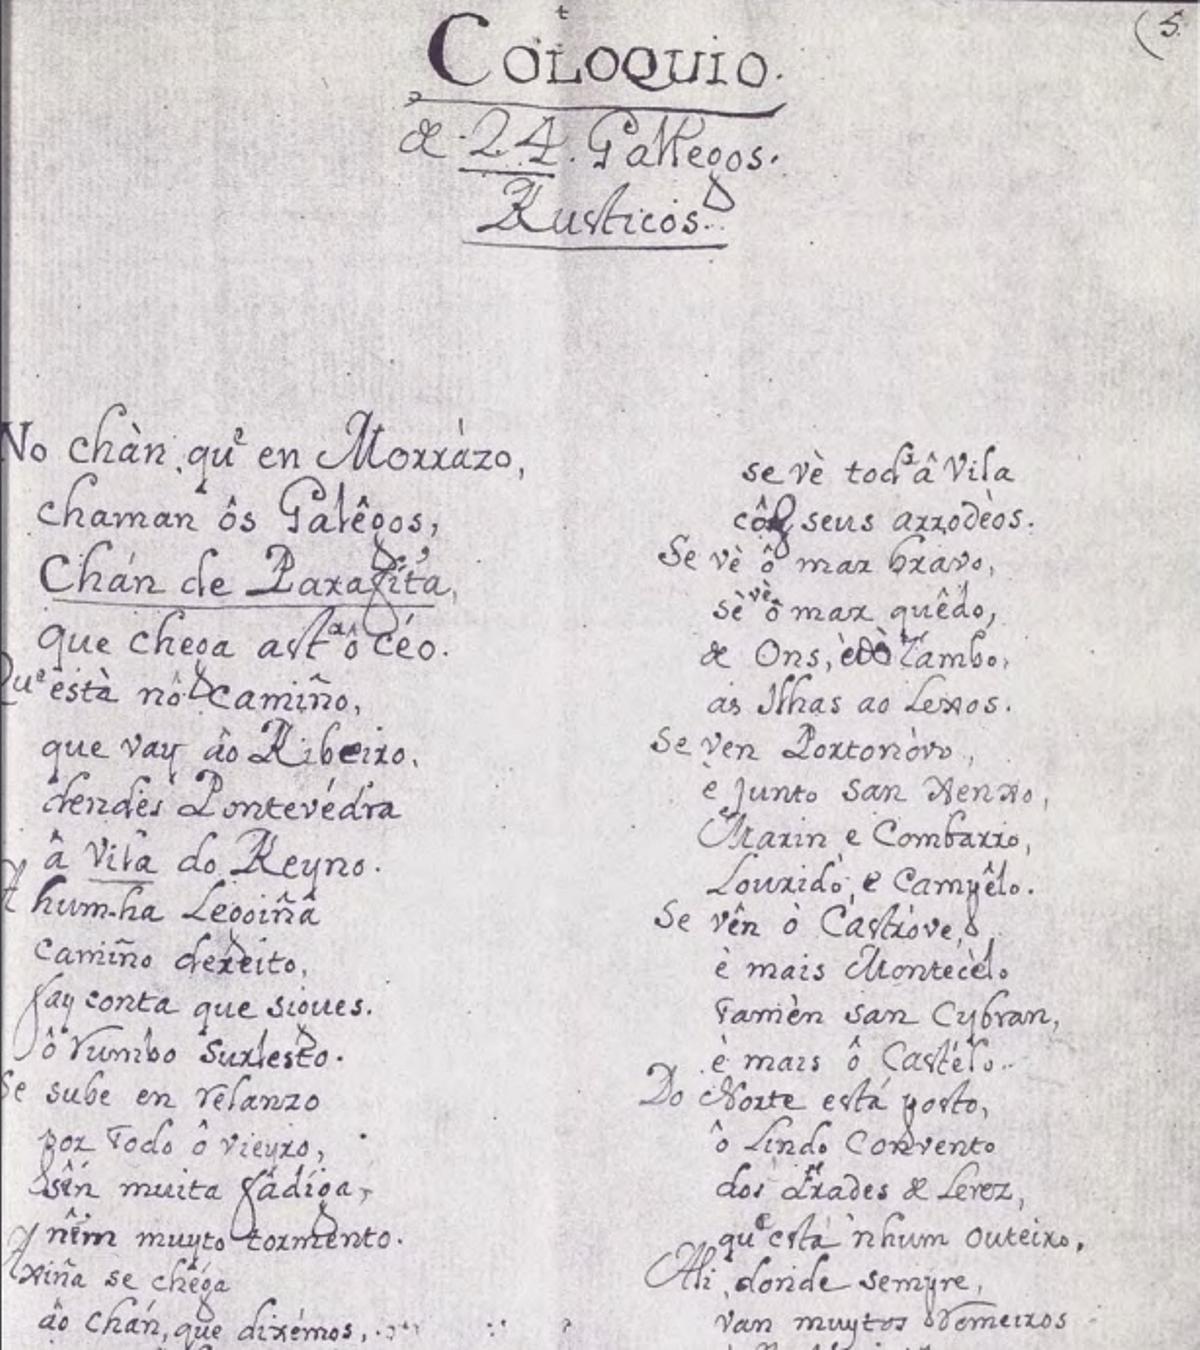 (5.
Coloquio.
de 24. Gallegos.
Rusticos.
No chàn, que en Morràzo,
chaman ôs Galêgos,
Chán de Parafíta,
que chega asta ô céo.
Que està nô camiño,
que vay âo Ribeiro,
dendes Pontevédra
â Vila do Reyno.
A hum-ha Legoiñâ
camiño dexeito,
fay conta que sigues.
ô rumbo surlesto.
Se sube en relanzo
por todo ô vieyro,
sên muita fâdiga,
y nêm muyto tormento.
Axiña se chéga
âo chán, que dixémos,
se vè toda â Vila
côs seus arrodèos.
Se vè ô mar bravo,
sè vè ô mar quêdo,
de Ons, è dò Támbo,
as Ilhas ao Lexos.
Se ven Portonòvo,
è junto san Xenxo,
Marin e Combarro,
Louridò, e Campêlo.
Se vên ò Cástròve,
è mais Montecèlo
tamèn san Cybran,
è mais ô Castélo..
Do Norte está posto,
ô Lindo Convento
dos Frades de Lerez,
que está nhum outeiro,
Ali, donde sempre,
van muytos Romeiros